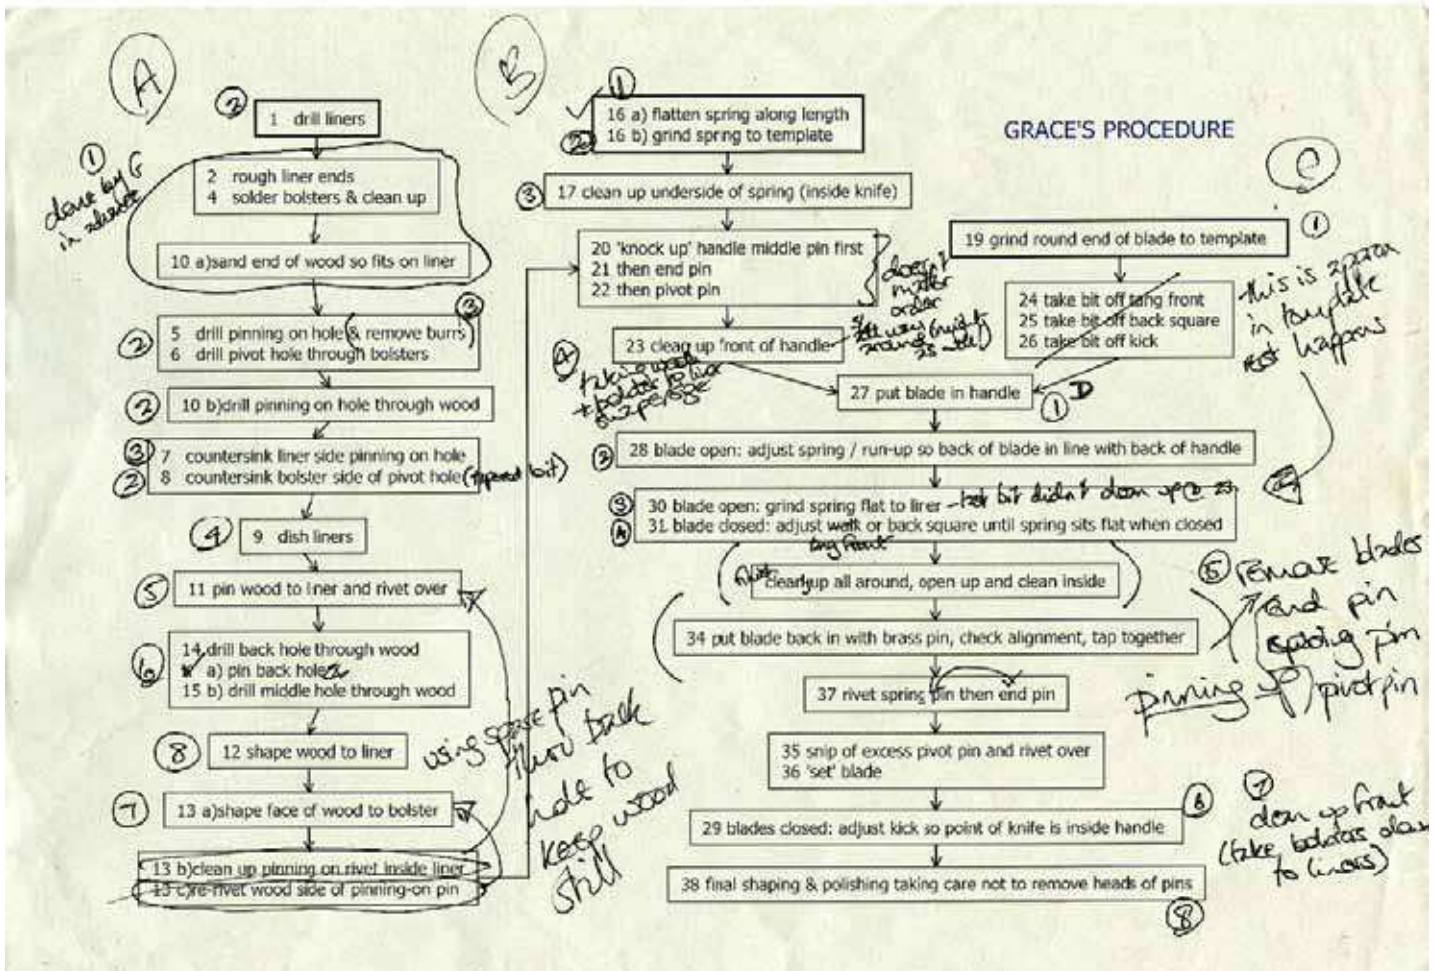 A
2
1 drill liners
1
done by G
in advance
2 rough liner ends
4 solder bolsters & clean up
10 a)sand end of wood so fits on liner
3
2
5 drill pinning on hole (& remove burrs)
6 drill pivot hole through bolsters
2
10 b)drill pinning on hole through wood
3
7 countersink liner side pinning on hole
2
8 countersink bolster side of pivot hole (tapered bit)
4
9 dish liners
5
11 pin wood to liner and rivet over
6
14 drill back hole through wood
a) pin back hole
15 b) drill middle hole through wood
8
12 shape wood to liner
7
13 a)shape face of wood to bolster
13 b)clean up pinning on rivet inside liner
13 c)re-rivet wood side of pinning-on pin
using spare pin
thro back
hole to
keep wood
still
B
1
16 a) flatten spring along length
2
16 b) grind spring to template
3
17 clean up underside of spring (inside knife)
20 'knock up' handle middle pin first
21 then end pin
22 then pivot pin
doesn't
matter
order
23 clean up front of handle
4
taking wood
GRACE'S PROCEDURE
C
1
19 grind round end of blade to template
24 take bit off tang front
25 take bit off back square
26 take bit off kick
this is
in template
happens
27 put blade in handle
1 D
2
28 blade open: adjust spring / run-up so back of blade in line with back of handle
3
30 blade open: grind spring flat to liner - bit didn't clean up @ 23
4
31 blade closed: adjust walk or back square until spring sits flat when closed
tang front
clean up all around, open up and clean inside
34 put blade back in with brass pin, check alignment, tap together
5 remove blades
end pin
spring pin
pivot pin
pinning up
37 rivet spring pin then end pin
35 snip of excess pivot pin and rivet over
36 'set' blade
6
29 blades closed: adjust kick so point of knife is inside handle
7
clean up front
(take bolsters down
to liners)
38 final shaping & polishing taking care not to remove heads of pins
8